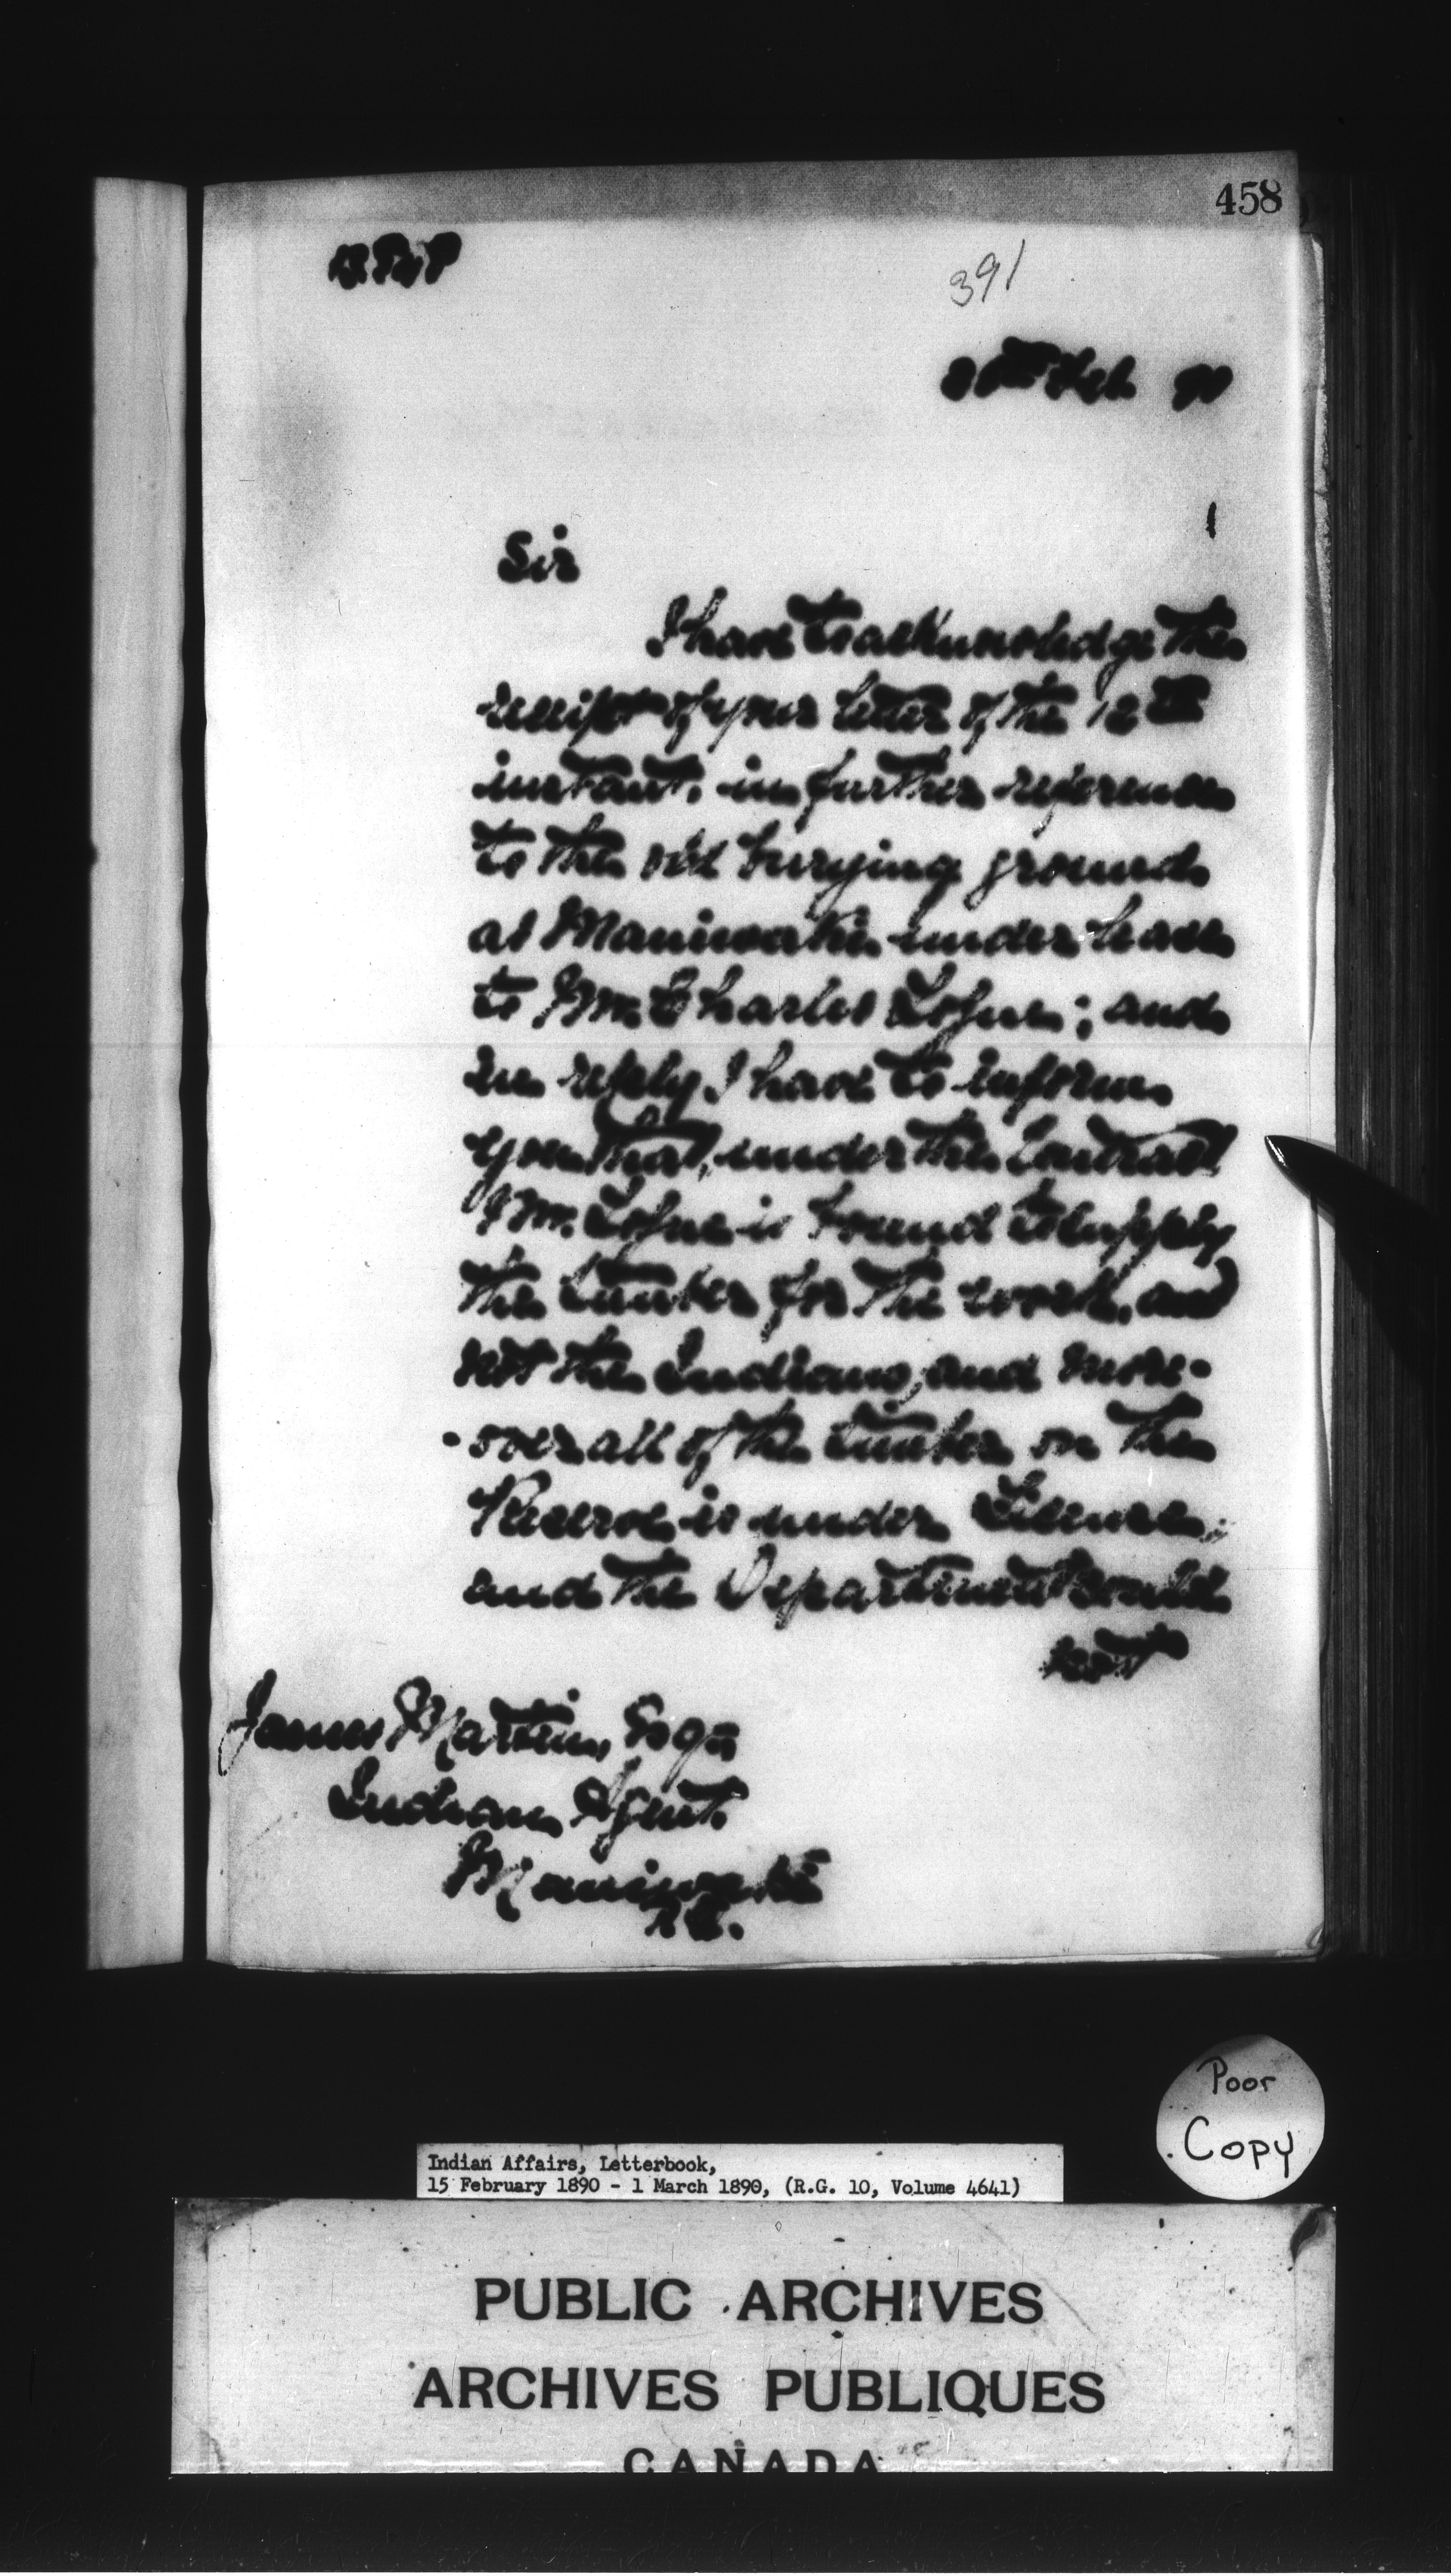 458
391
Feb 90
Sir
I have to acknowledge the
receipt of your letter of the 12th
instant, in further reference
to the old burying ground
at Maniwaki under lease
to Mr. Charles Logue; and
in reply I have to inform
you that, under the Contract
Mr. Logue is bound to supply
the timber for the work, and
not the Indians, and more-
-over all of the timber on the
Reserve is under License;
and the Department could
not
James Martin, Esqr
Indian Agent.
Maniwaki
Poor
Copy
Indian Affairs, Letterbook,
15 February 1890 - 1 March 1890, (R.G. 10, Volume 4641)
PUBLIC ARCHIVES
ARCHIVES PUBLIQUES
CANADA